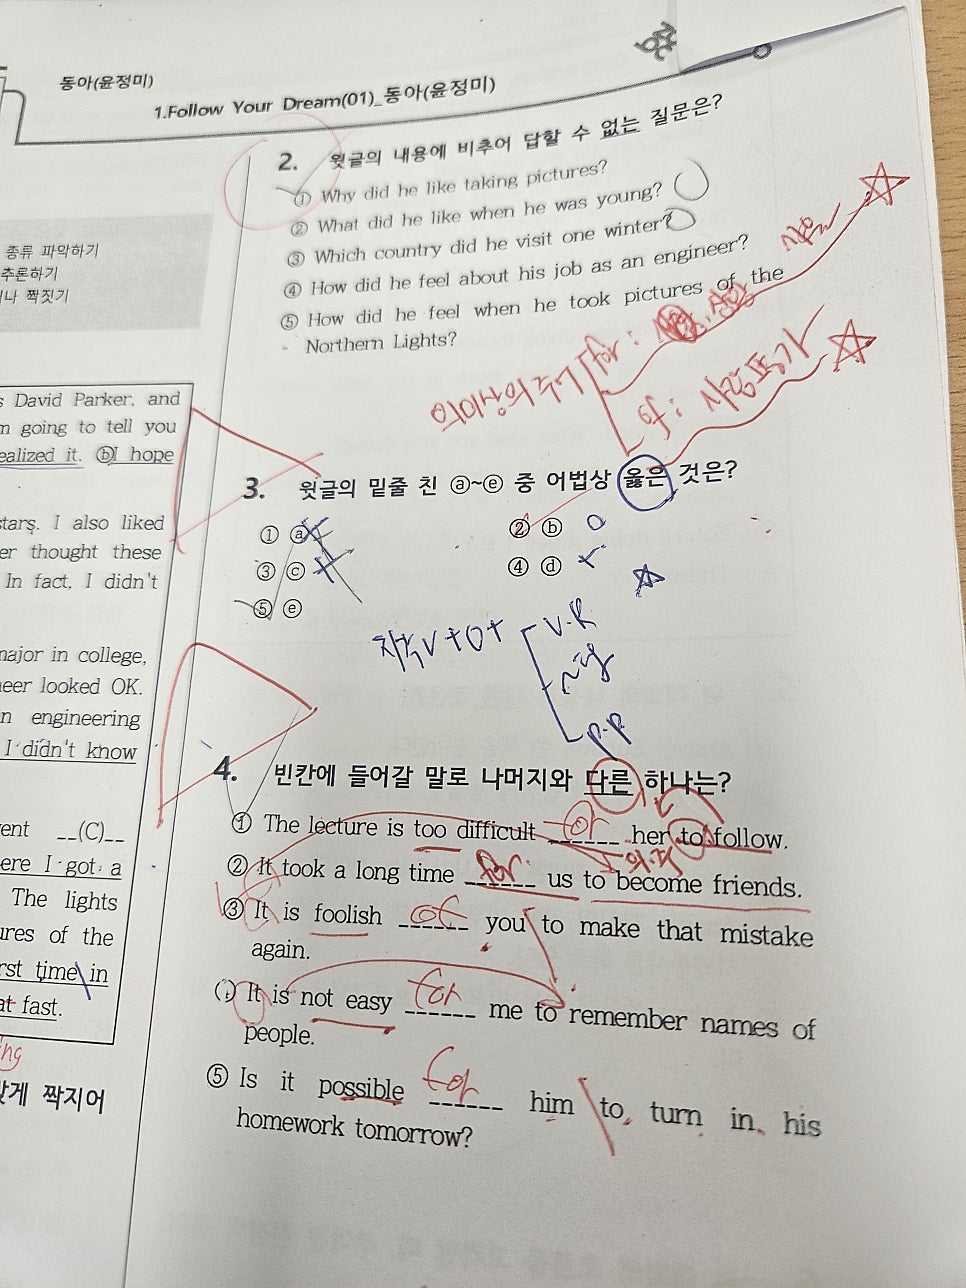 동아(윤정미)
1.Follow Your Dream(01)_동아(윤정미)
종류 파악하기
추론하기
짝짓기
David Parker, and
going to tell you
realized it. ⓑI hope
stars. I also liked
thought these
In fact, I didn't
major in college,
looked OK.
engineering
I didn't know
(C)
I got a
The lights
of the
time in
at fast.
짝지어
2. 윗글의 내용에 비추어 답할 수 없는 질문은?
① Why did he like taking pictures?
② What did he like when he was young?
③ Which country did he visit one winter?
④ How did he feel about his job as an engineer?
⑤ How did he feel when he took pictures of the
Northern Lights?
의미상의 주어
for:
of: 사람
3. 윗글의 밑줄 친 ⓐ~ⓔ 중 어법상 옳은 것은?
① ⓐ ② ⓑ
③ ⓒ ④ ⓓ
⑤ ⓔ
지각V+O+
V.R
~ing
p.p
4. 빈칸에 들어갈 말로 나머지와 다른 하나는?
① The lecture is too difficult ______ her to follow.
② It took a long time for us to become friends.
③ It is foolish of you to make that mistake
again.
④ It is not easy for me to remember names of
people.
⑤ Is it possible for him to turn in his
homework tomorrow?